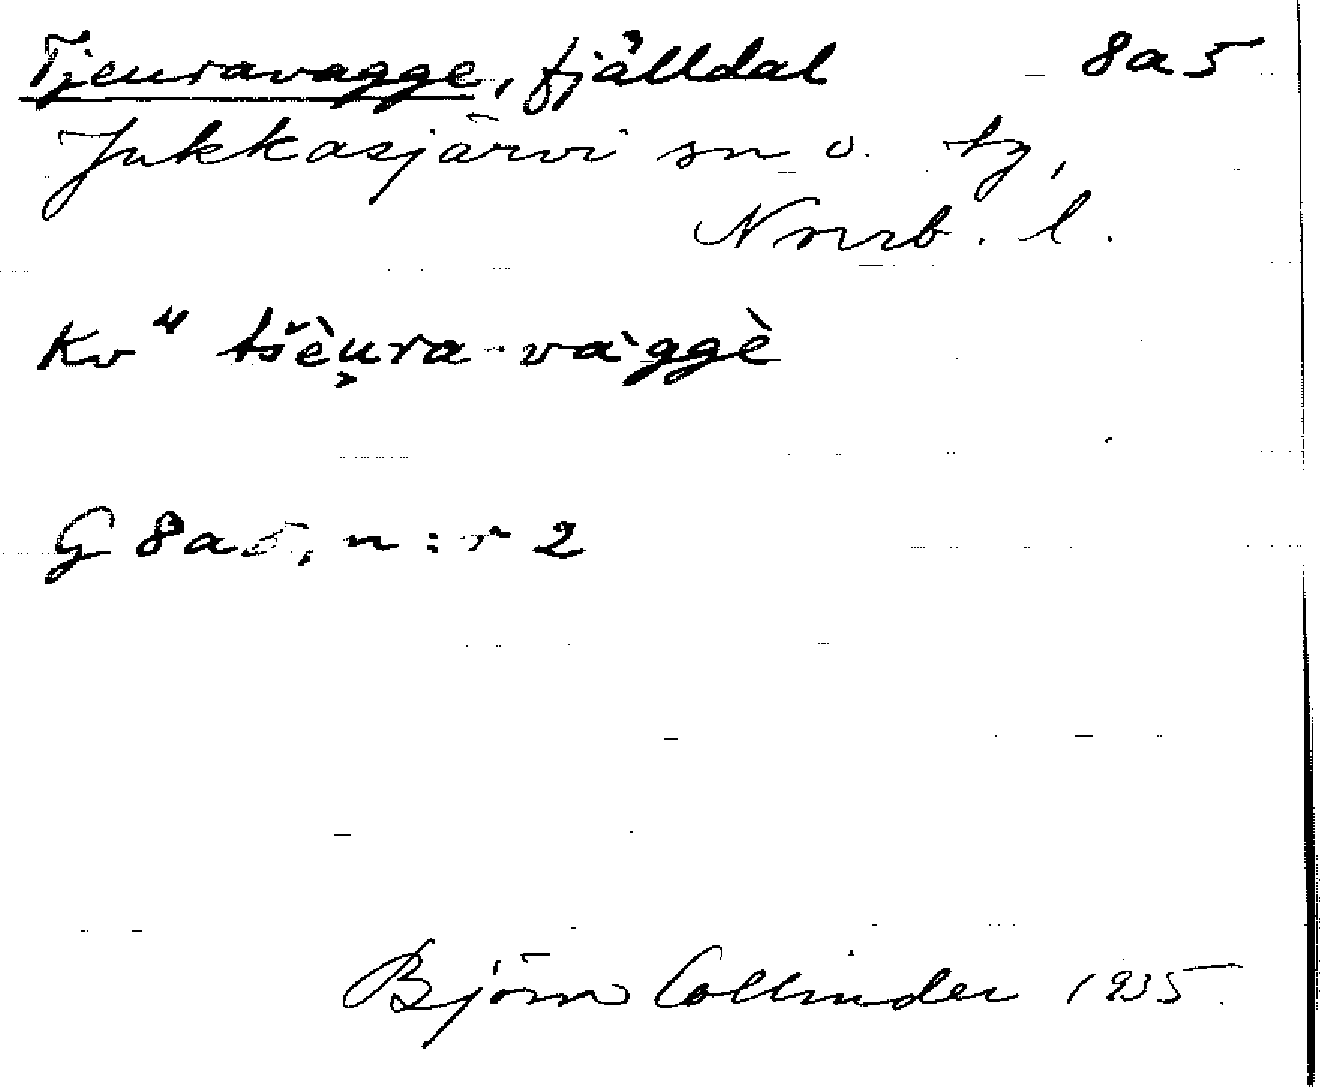 Tjeuravagge, fjälldal 8a5
Jukkasjärvi sn o. tg,
Norrb. l.
Kv" tšèu̯ra-va`ggè
G 8a5, n:r 2
Björn Collinder 1935.